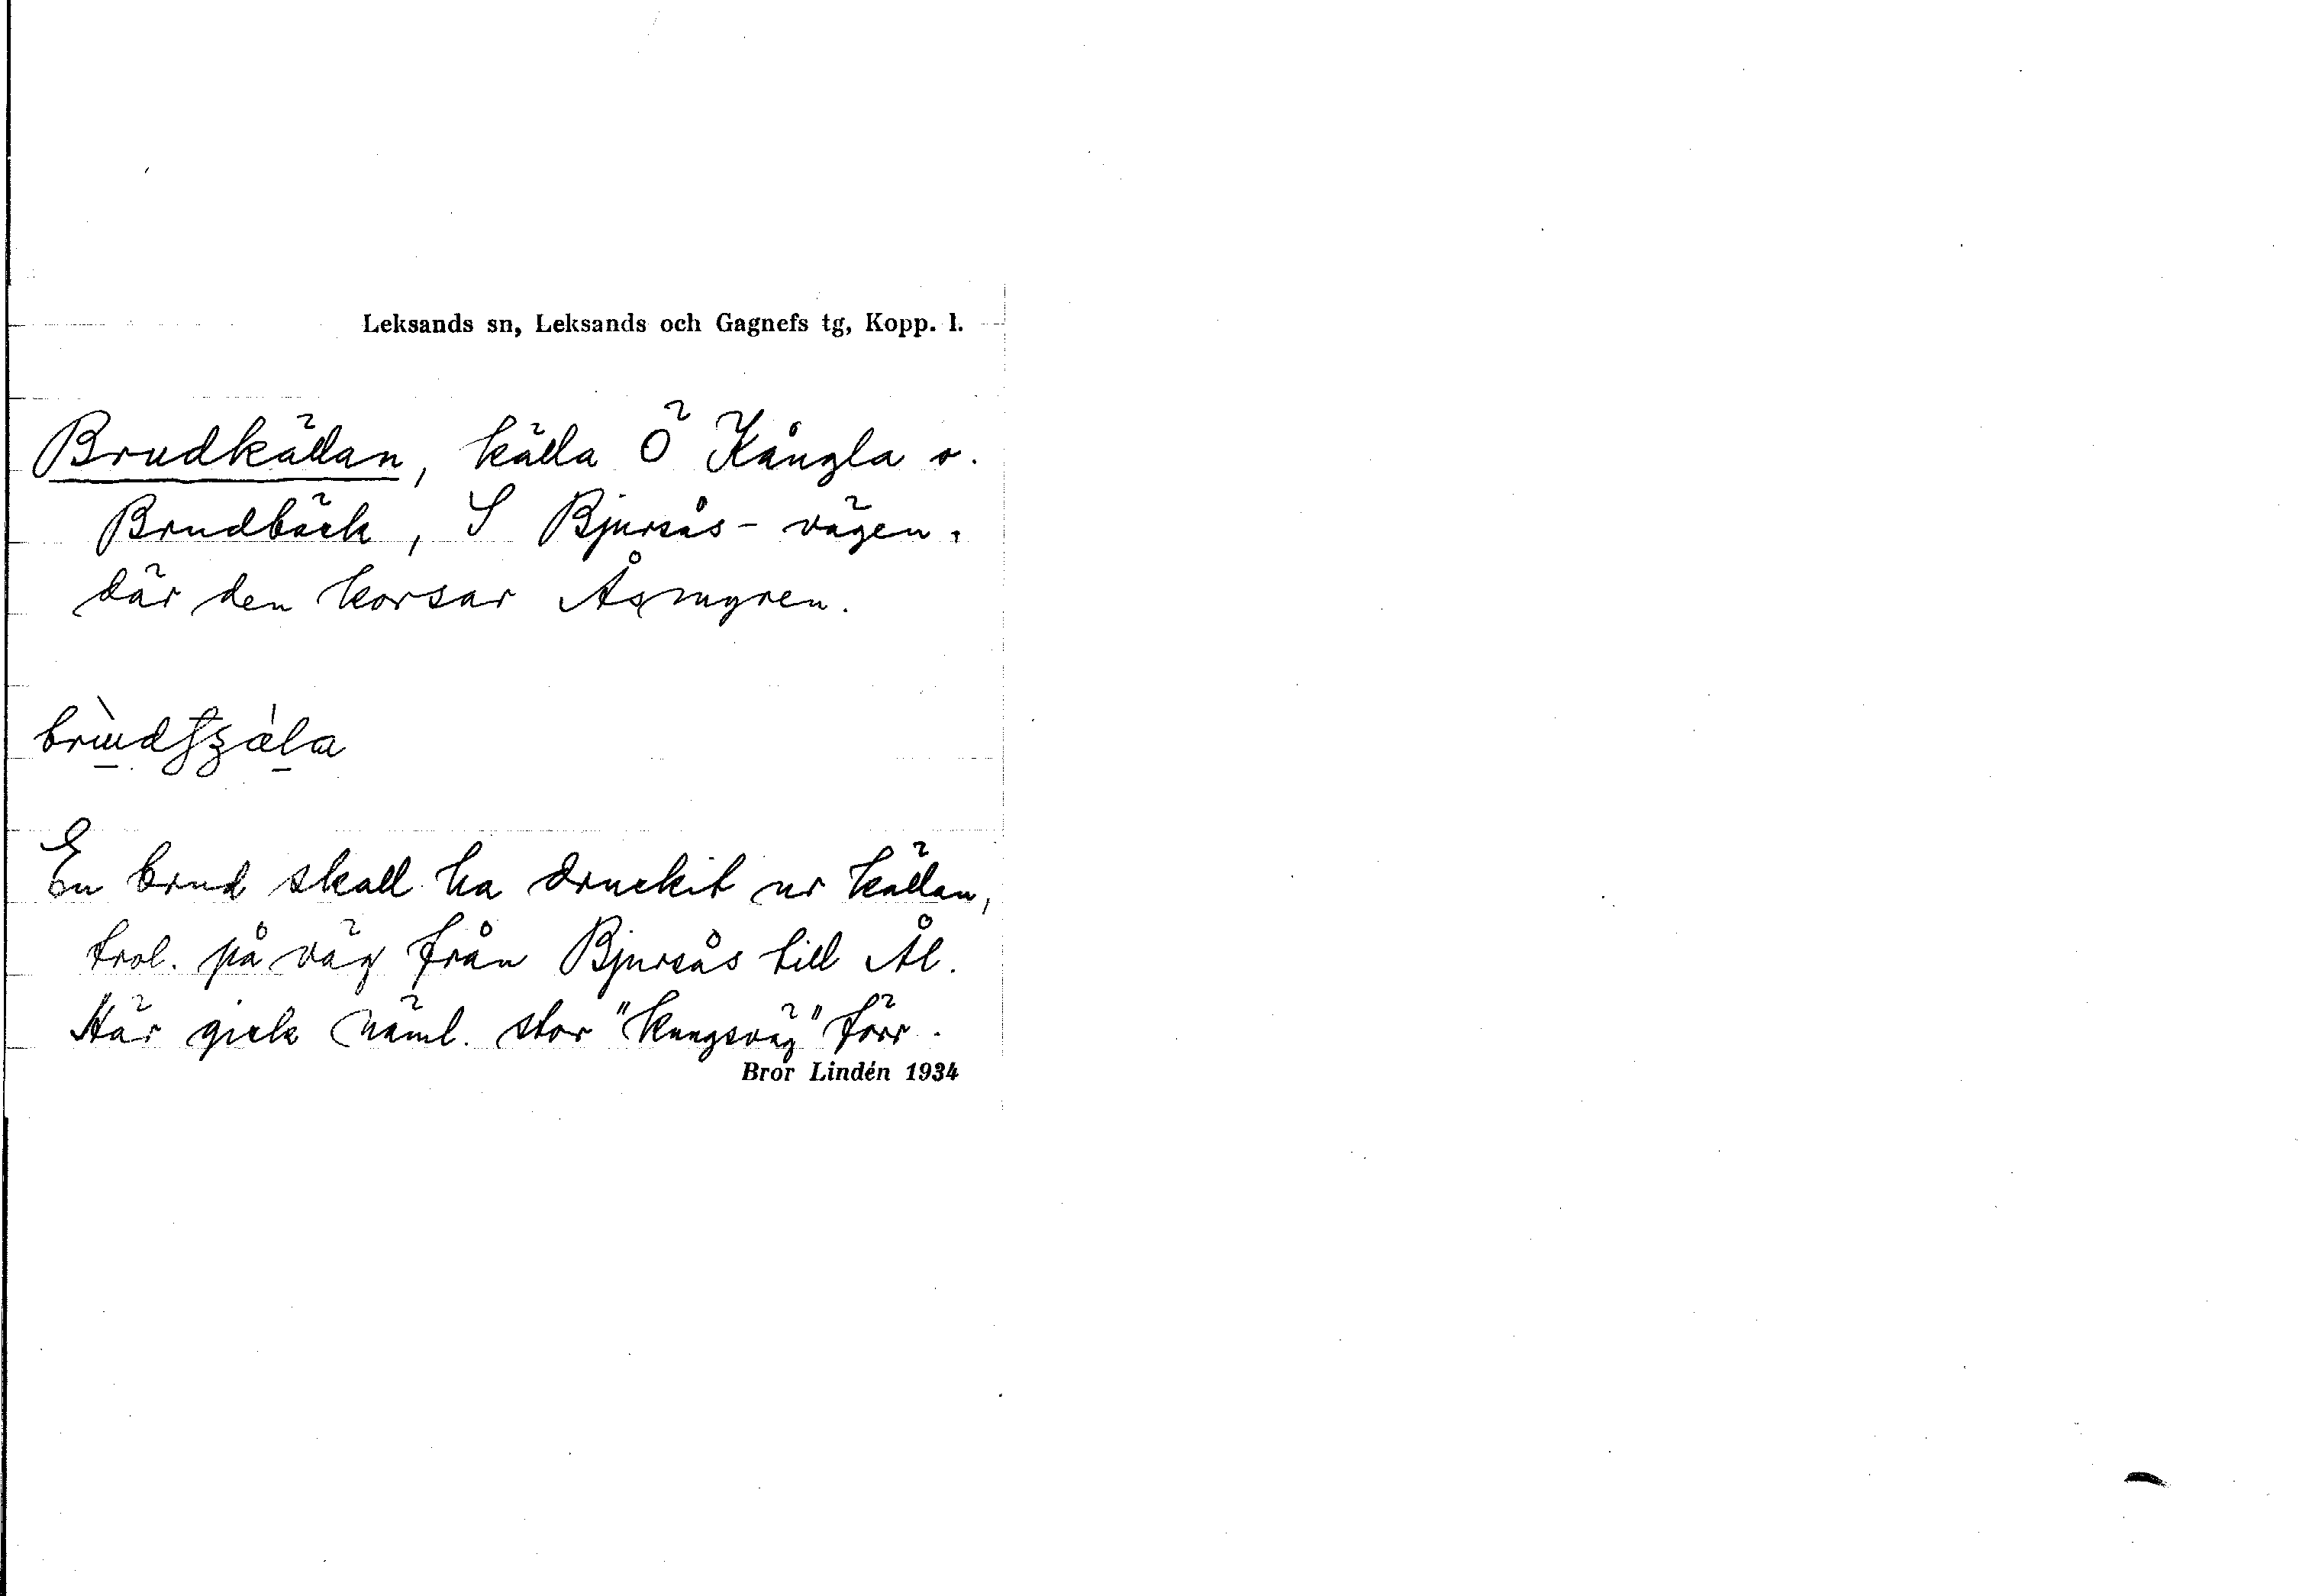 Leksands sn, Leksands och Gagnefs tg, Kopp. l.
Brudkällan, källa Ö Kångla o.
Brudbäck, S Bjursås-vägen,
där den korsar Åsmyren.
En brud skall ha druckit ur källan,
trol. på väg från Bjursås till Ål.
Här gick näml. stor "kungsväg" förr.
Bror Lindén 1934